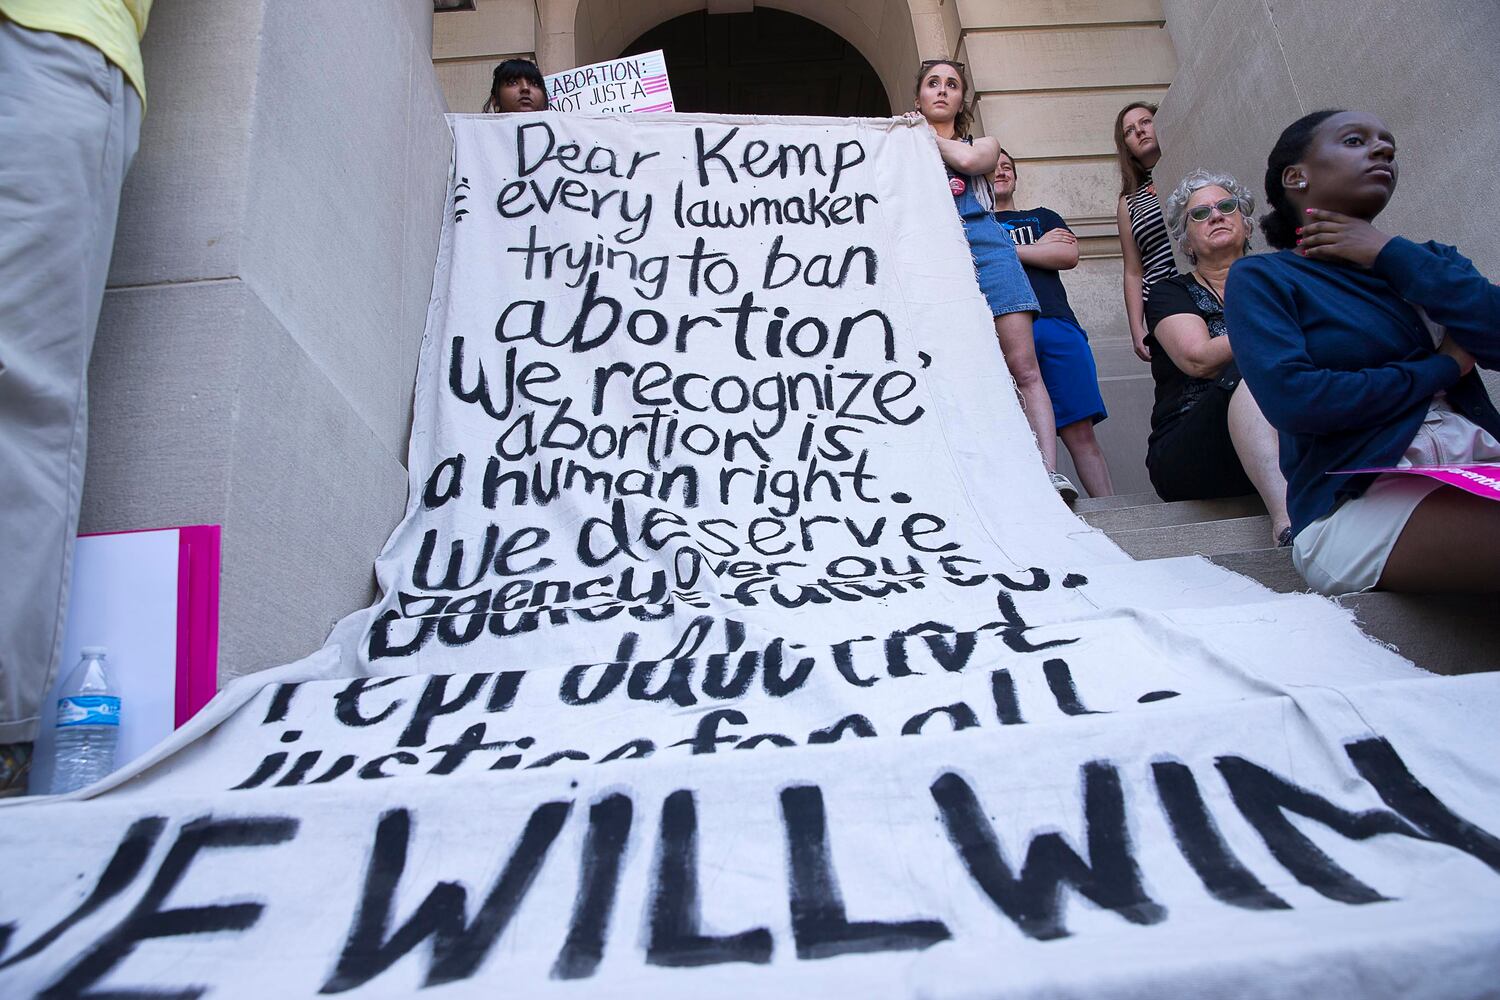 ABORTION:
NOT JUST A
Dear Kemp
every lawmaker
trying to ban
abortion,
We recognize
abortion is
a human right.
We deserve
agency over our
reproductive
justice for all.
WE WILL WIN
ATL